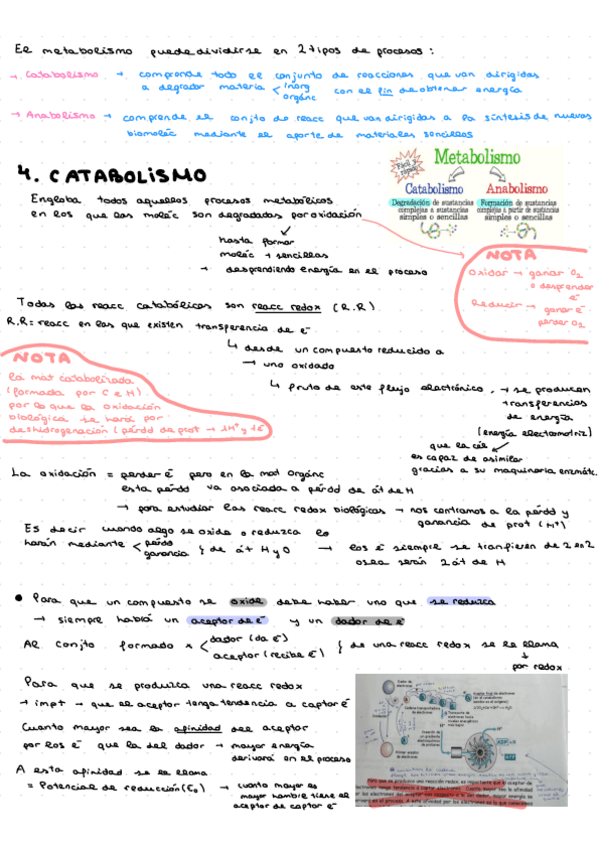 El metabolismo puede dividirse en 2 tipos de procesos:
→ Catabolismo → comprende todo el conjunto de reacciones que van dirigidas
a degradar materia < inorg orgánc con el fin de obtener energía
→ Anabolismo → comprende el conjto de reacc que van dirigidas a la síntesis de nuevas
biomoléc mediante el aporte de materiales sencillos
4. CATABOLISMO
Fácil y rápido
Metabolismo
Catabolismo
Anabolismo
Degradación de sustancias
complejas a sustancias
simples o sencillas
Formación de sustancias
complejas a partir de sustancias
simples o sencillas
Engloba todos aquellos procesos metabólicos
en los que las moléc son degradadas por oxidación
hasta formar
moléc + sencillas
→ desprendiendo energía en el proceso
NOTA
Oxidar → ganar O2
o desprender
e-
Reducir → ganar e-
perder O2
Todas las reacc catabólicas son reacc redox (R.R)
R.R = reacc en las que existen transferencia de e-
↳ desde un compuesto reducido a
→ uno oxidado
↳ fruto de este flujo electrónico, → se producen
transferencias
de energía
(energía electromotriz)
que la cél
es capaz de asimilar
gracias a su maquinaria enzimátc.
NOTA
la mat catabolizada
(formada por C e H)
por lo que la oxidación
biológica se hará por
deshidrogenación (pérdd de prot → 1H+ y 1e-
La oxidación = perder e- pero en la mat orgánc
esta pérdd va asociada a pérdd de át de H
→ para estudiar las reacc redox biológicas → nos centramos a la pérdd y
ganancia de prot (H+)
Es decir cuando algo se oxida o reduzca lo
harán mediante < pérdd ganancia } de át H y O → los e- siempre se tranfieren de 2 en 2
osea serán 2 át de H
• Para que un compuesto se oxide debe haber uno que se reduzca
→ siempre habrá un aceptor de e- y un dador de e-
Al conjto formado x < dador (da e-) aceptor (recibe e-) } de una reacc redox se le llama
↓
par redox
Para que se produzca una reacc redox
→ impt → que el aceptor tenga tendencia a captar e-
Cuanto mayor sea la afinidad del aceptor
por los e- que la del dador → mayor energía
derivará en el proceso
A esta afinidad se le llama
= Potencial de reducción (E0) → cuanto mayor es
mayor hambre tiene el
aceptor de captar e-
Dador de
electrones
Oxidación
Primer aceptor
de electrones
Creación de
un gradiente
electroquímico
de protones
ADP + Pi
ATP
Para que se produzca una reacción redox, es importante que el aceptor de
electrones tenga tendencia a captar electrones. Cuanto mayor sea la afinidad
por los electrones del aceptor con respecto a la del dador, mayor energía se